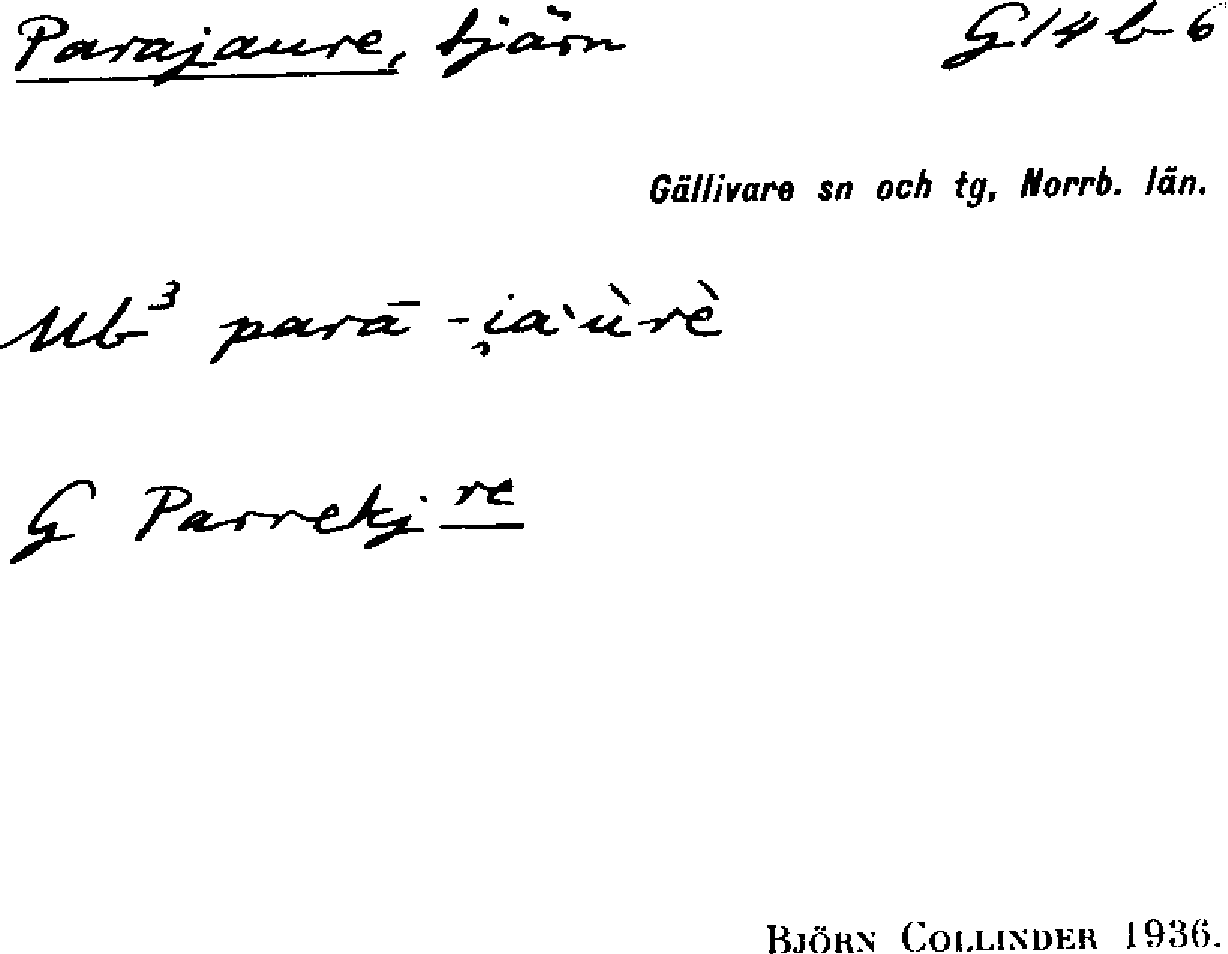 Parajaure, tjärn G 14 b 6
Gällivare sn och tg, Norrb. län.
Ub³ parā-i̯a`ùrè
G Parrekj re
BJÖRN COLLINDER 1936.